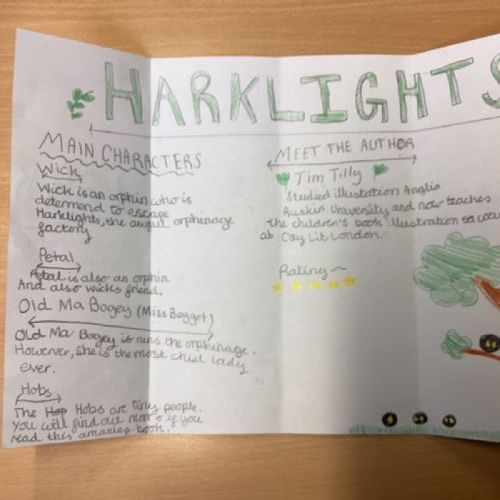 HARKLIGHTS
MAIN CHARACTERS
Wick
Wick is an orphin who is
determond to escape
Harklights, the awful orphinage
factory
Petal
Petal is also an orphin
And also wicks friend.
Old Ma Bogey (Miss Bogget)
Old Ma Bogey is runs the orphinage.
However, she is the most cruel lady
ever.
Hobs
The Hop Hobs are tiny people.
You will find out more if you
read this amazing book.
MEET THE AUTHOR
Tim Tilly
Studied illustration Anglia
Ruskin University and now teaches
the children's book illustration
at Cay Lit London.
Rating~